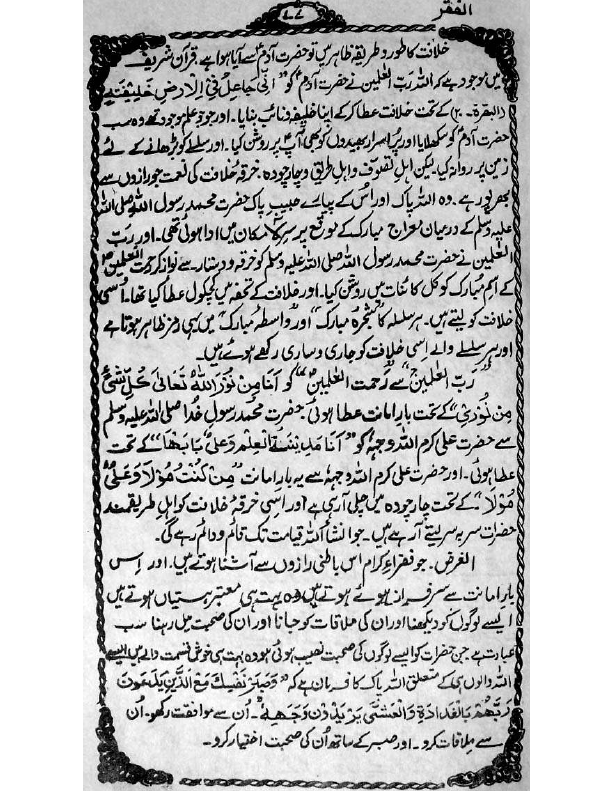 الفقر
۷۷
خلافت کا طور و طریقہ ظاہر میں تو حضرت آدمؑ سے آیا ہوا ہے قرآن شریف
میں موجود ہے کہ اللہ رَبّ العٰلمین نے حضرت آدمؑ کو ”اِنِّی جَاعِلٌ فِی الْاَرْضِ خَلِیْفَۃً“
(البقرة - ۳۰) کے تحت خلافت عطا کر کے اپنا خلیفہ و نائب بنایا۔ اور جو جو علم موجود تھے وہ سب
حضرت آدمؑ کو سکھلایا اور پُر اسرار بھیدوں کو بھی آپؑ پر روشن کیا۔ اور سلسلے کو بڑھانے کے لئے
زمین پر روانہ کیا لیکن اہلِ تصوّف و اہلِ طریق و چار چودہ۔ خرقۂ خلافت کی نعمت جو رازوں سے
بھرپور ہے۔ وہ اللہ پاک اور اُس کے پیارے حبیبِ پاک حضرت محمد رسول اللہ صلی اللہ
علیہ وسلم کے درمیان معراج مبارک کے موقع پر سِر کا مکان میں ادا ہوئی تھی۔ اور رَبّ
العٰلمین نے حضرت محمد رسول اللہ صلی اللہ علیہ وسلم کو خرقہ و دستار سے نواز کر رحمت العٰلمین
کے اسم مبارک کو کل کائنات میں روشن کیا۔ اور خلافت کے تحفہ میں کچکول عطا کیا تھا۔ اُسی
خلافت کو لیتے ہیں۔ ہر سلسلہ کا ”شجرہ مبارک“ اور ”واسطہ مبارک“ میں یہی رمز ظاہر ہوتا ہے
اور ہر سلسلے والے اِسی خلافت کو جاری و ساری رکھے ہوئے ہیں۔
”رَبّ العٰلمین“ سے ”رَحمت العٰلمین“ کو اَنَا مِنْ نُوْرِ اللّٰہِ تَعَالیٰ کُلِّ شَیْءٍ
مِنْ نُوْرِیْ“ کے تحت بارِ امانت عطا ہوئی حضرت محمد رسول خُدا صلی اللہ علیہ وسلم
سے حضرت علی کرم اللہ وجہہ کو ”اَنَا مَدِیْنَۃُ الْعِلْمِ وَعَلِیٌّ بَابُھَا“ کے تحت
عطا ہوئی۔ اور حضرت علی کرم اللہ وجہہ سے یہ بارِ امانت ”مَنْ کُنْتُ مَوْلَاہُ وَعَلِیٌّ
مَوْلَاہُ“ کے تحت چار چودہ میں چلی آرہی ہے اور اسی خرقۂ خلافت کو اہلِ طریقہ
حضرات سر بہ سر لیتے آرہے ہیں۔ جو انشاء اللہ قیامت تک قائم و دائم رہے گی۔
الغرض۔ جو فقراء کرام اس باطنی رازوں سے آشنا ہوتے ہیں۔ اور اِس
بارِ امانت سے سرفراز ہوئے ہوتے ہیں وہ بہت ہی معتبر ہستیاں ہوتے ہیں
ایسے لوگوں کو دیکھنا اور ان کی ملاقات کو جانا اور ان کی صحبت میں رہنا سب
عبادت ہے جن حضرات کو ایسے لوگوں کی صحبت نصیب ہوئی ہو وہ بہت ہی خوش قسمت والے ہیں ایسے
اللہ والوں ہی کے متعلق اللہ پاک کا فرمان ہے کہ ”وَصْبِرْ نَفْسَکَ مَعَ الَّذِیْنَ یَدْعُوْنَ
رَبَّھُمْ بِالْغَدَاۃِ وَالْعَشِیِّ یُرِیْدُوْنَ وَجْھَہٗ“۔ اُن سے موافقت رکھو۔ اُن
سے ملاقات کرو۔ اور صبر کے ساتھ اُن کی صحبت اختیار کرو۔